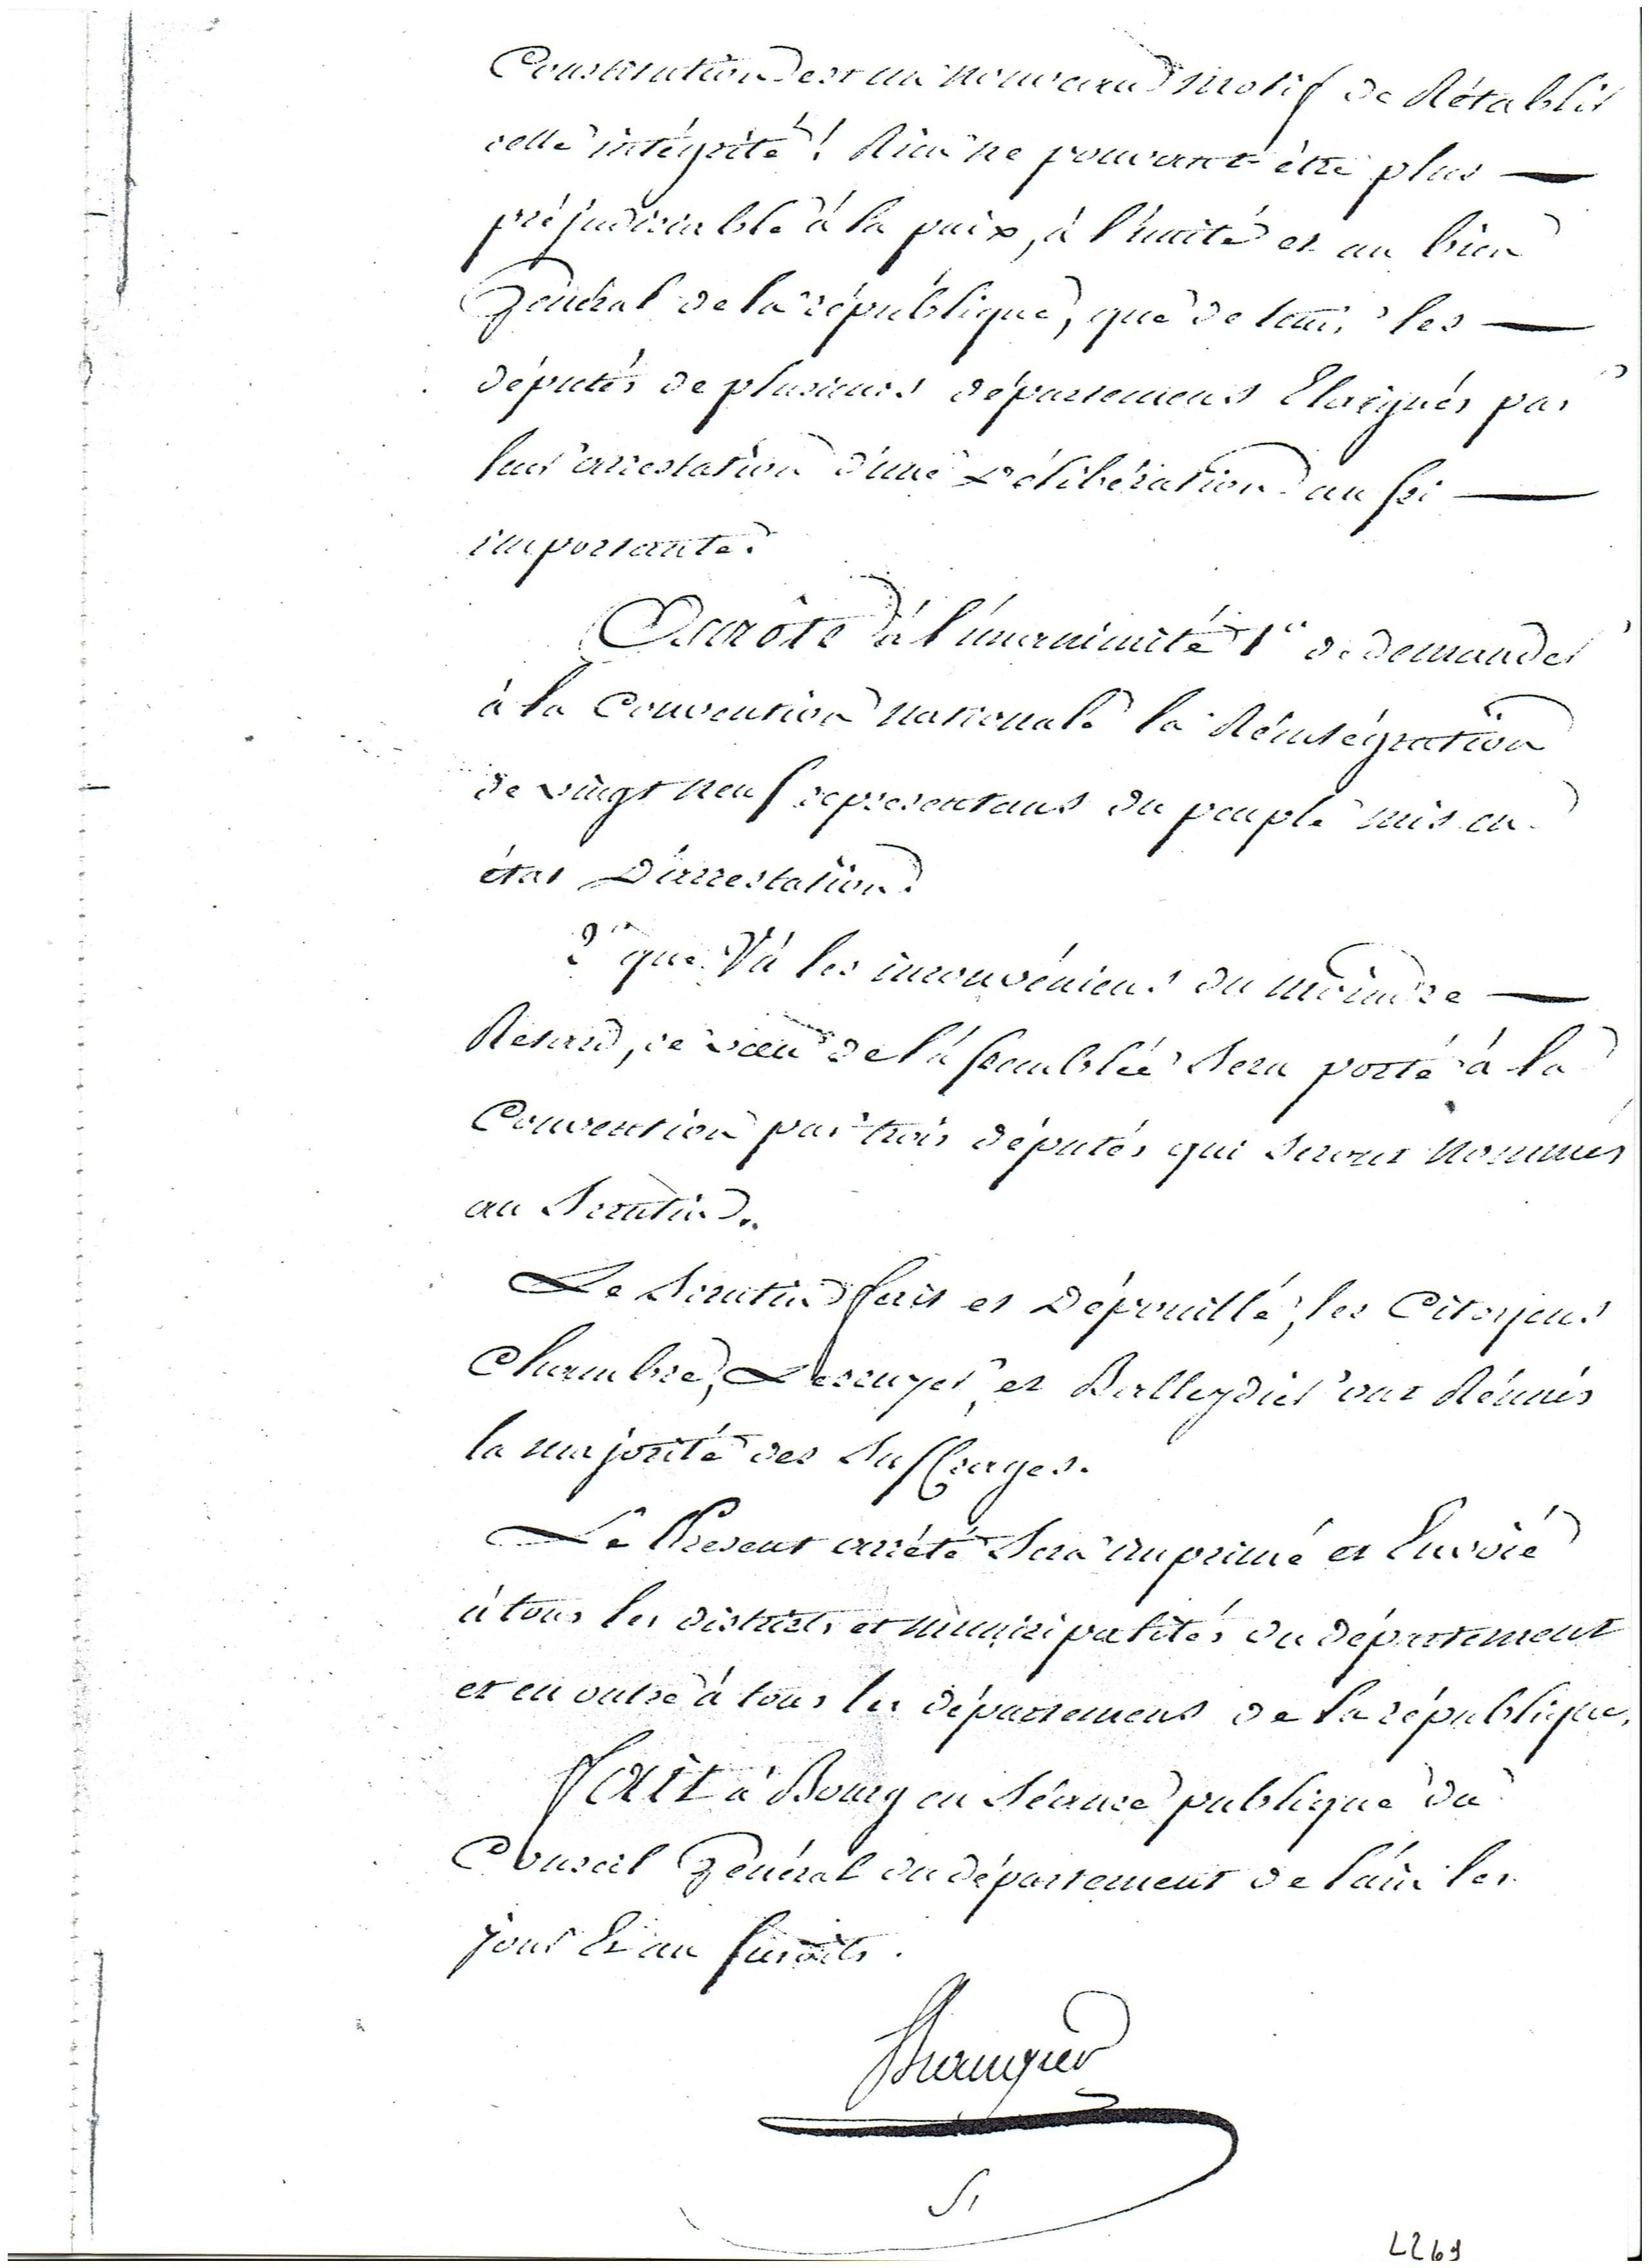 Constitution est un nouveau motif de Rétablir
cette intégrité! Rien ne pouvant être plus —
préjudiciable à la paix, à l'unité et au bien
Général de la république, que de tenir les —
députés de plusieurs départemens Eloignés par
leur arrestation d'une Délibération aussi —
importante.
Arrête à l'unanimité 1° de demander
à la Convention nationale la Réintégration
de vingt neuf représentans du peuple mis en
état D'arrestation.
2° que Vû les inconvéniens du moindre —
Retard, ce vœu de l'assemblée sera porté à la
Convention par trois députés qui seront nommés
au Scrutin.
Le Scrutin fait et Dépouillé, les Citoyens
Chambre, Lescuyer, et Balleydier ont Réunis
la majorité des Suffrages.
Le Présent arrêté Sera imprimé et Envoié
à tous les districts et municipalités du département
et en outre à tous les départemens de la république.
Fait à Bourg en Séance publique du
Conseil Général du département de l'ain les
jour Et an susdits.
L269